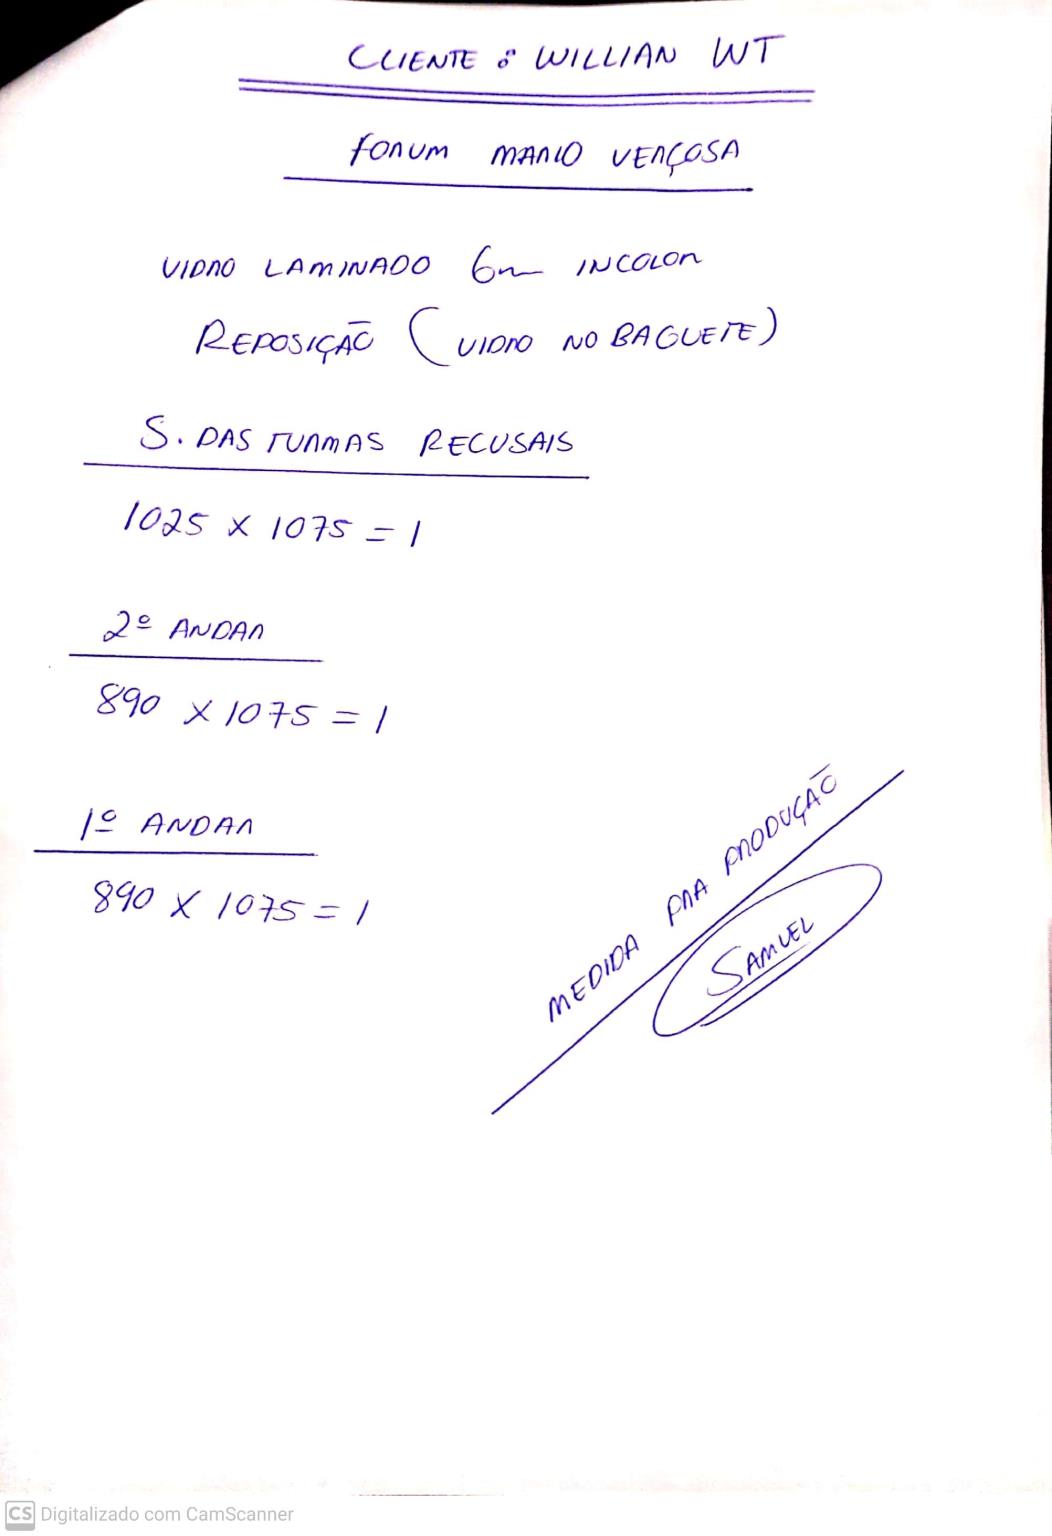 CLIENTE : WILLIAN WT
FORUM MARIO VERÇOSA
VIDRO LAMINADO 6m INCOLOR
REPOSIÇÃO (VIDRO NO BAGUETE)
S. DAS TURMAS RECUSAIS
1025 X 1075 = 1
2º ANDAR
890 X 1075 = 1
1º ANDAR
890 X 1075 = 1
MEDIDA PRA PRODUÇÃO
SAMUEL
CS Digitalizado com CamScanner